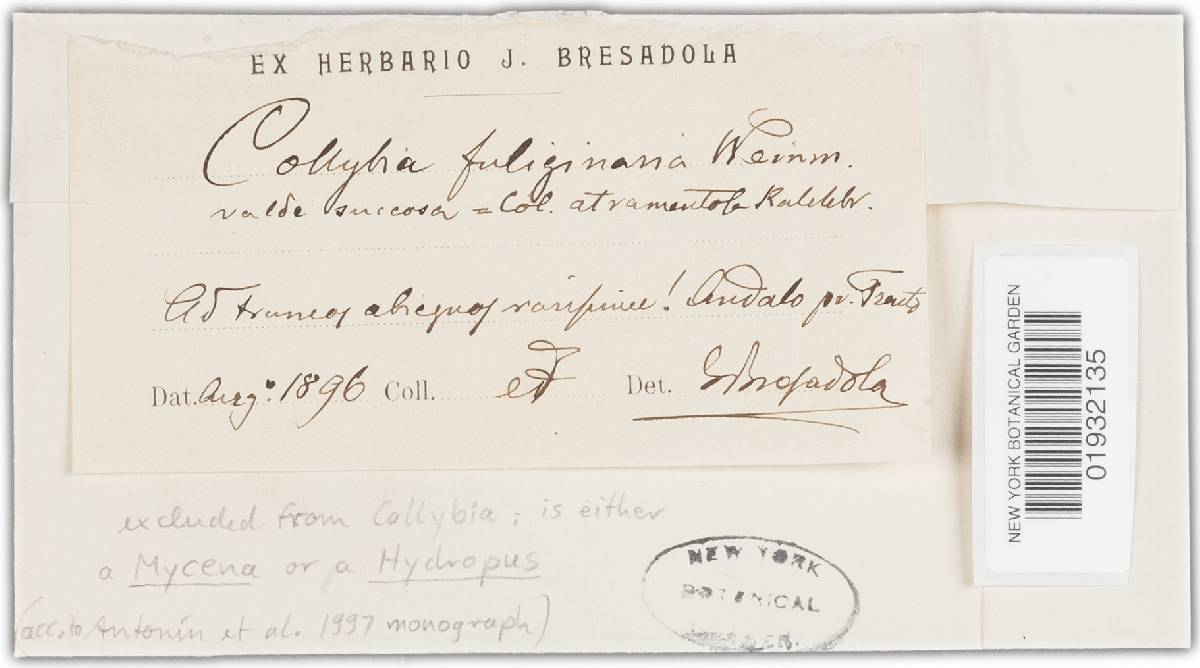 EX HERBARIO J. BRESADOLA
Collybia fuliginaria Weinm.
valde succosa = Col. atramentosa Kalchbr.
Ad truncos abiegnos rarissime! Andalo pr. Trento
Dat. Aug.° 1896 Coll. et Det. Bresadola
excluded from Collybia; is either
a Mycena or a Hydropus
(acc. to Antonín et al. 1997 monograph)
NEW YORK
BOTANICAL
GARDEN.
NEW YORK BOTANICAL GARDEN
01932135